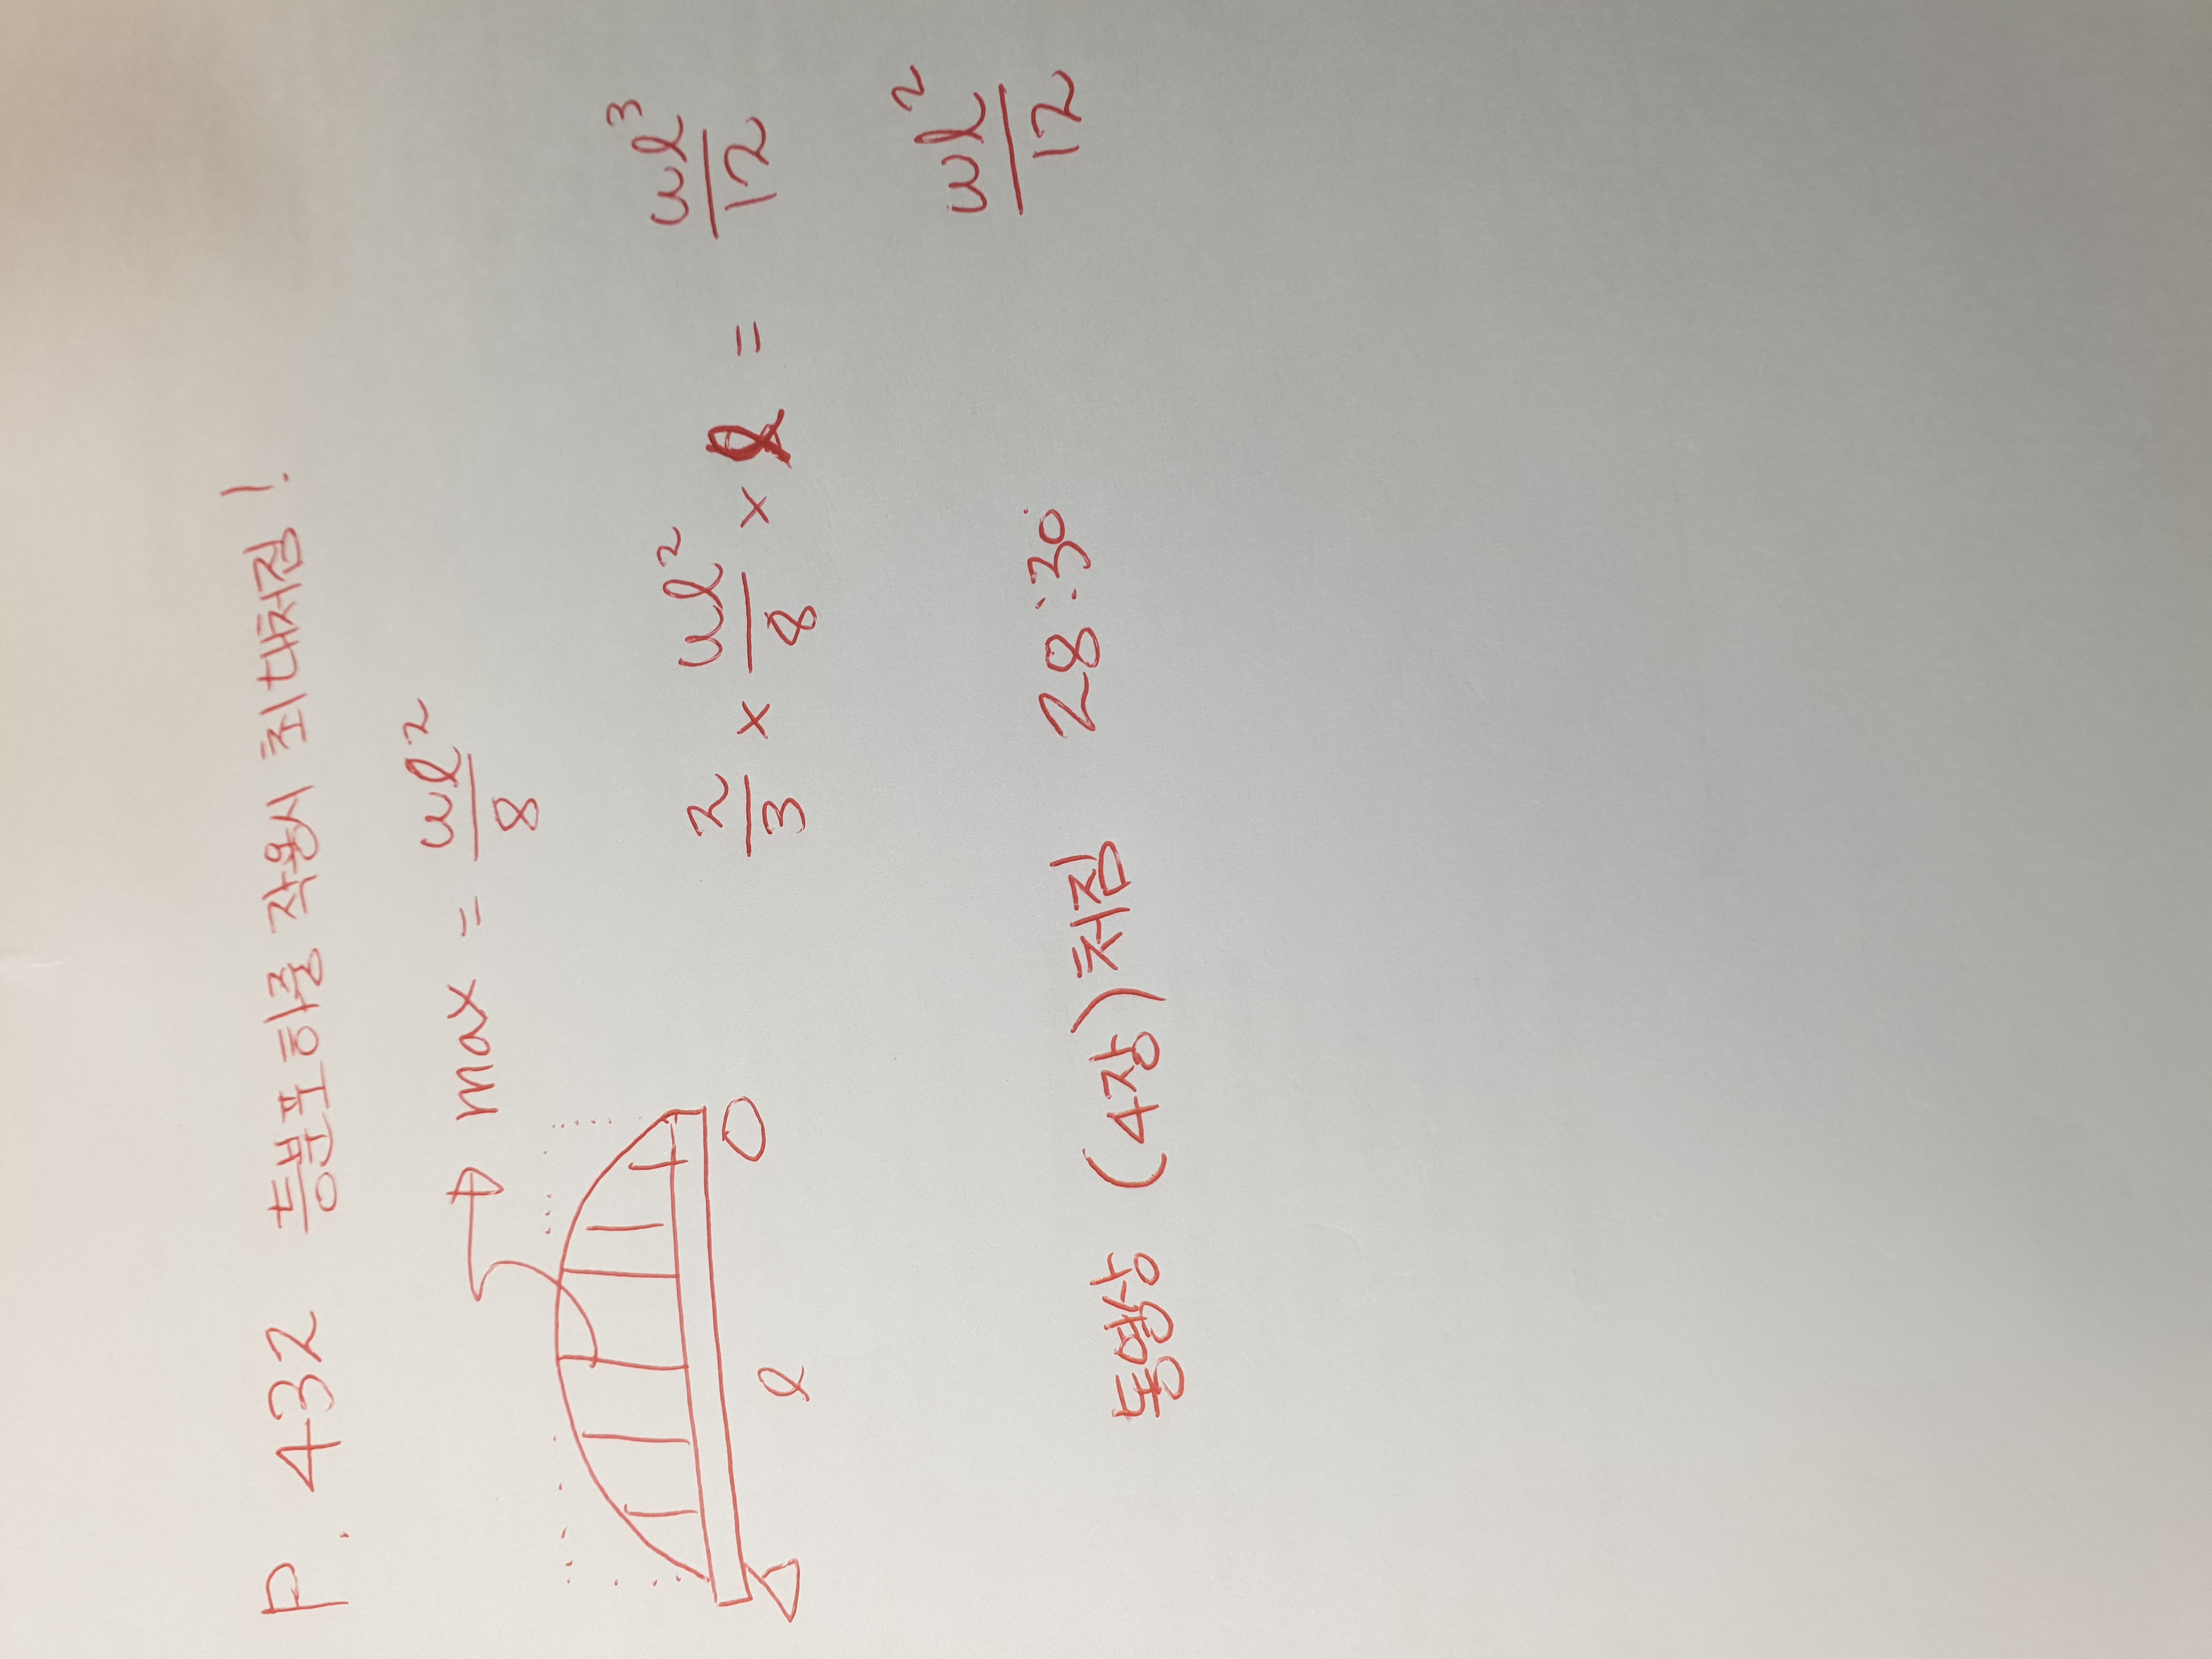 P. 432 등분포하중 작용시 최대처짐!
max = wl²/8
l
2/3 × wl²/8 × l = wl³/12
wl²/12
동영상 (4장) 처짐 28:30